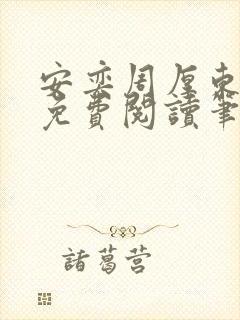 安奕周厚東
免費閱讀筆
諸葛营